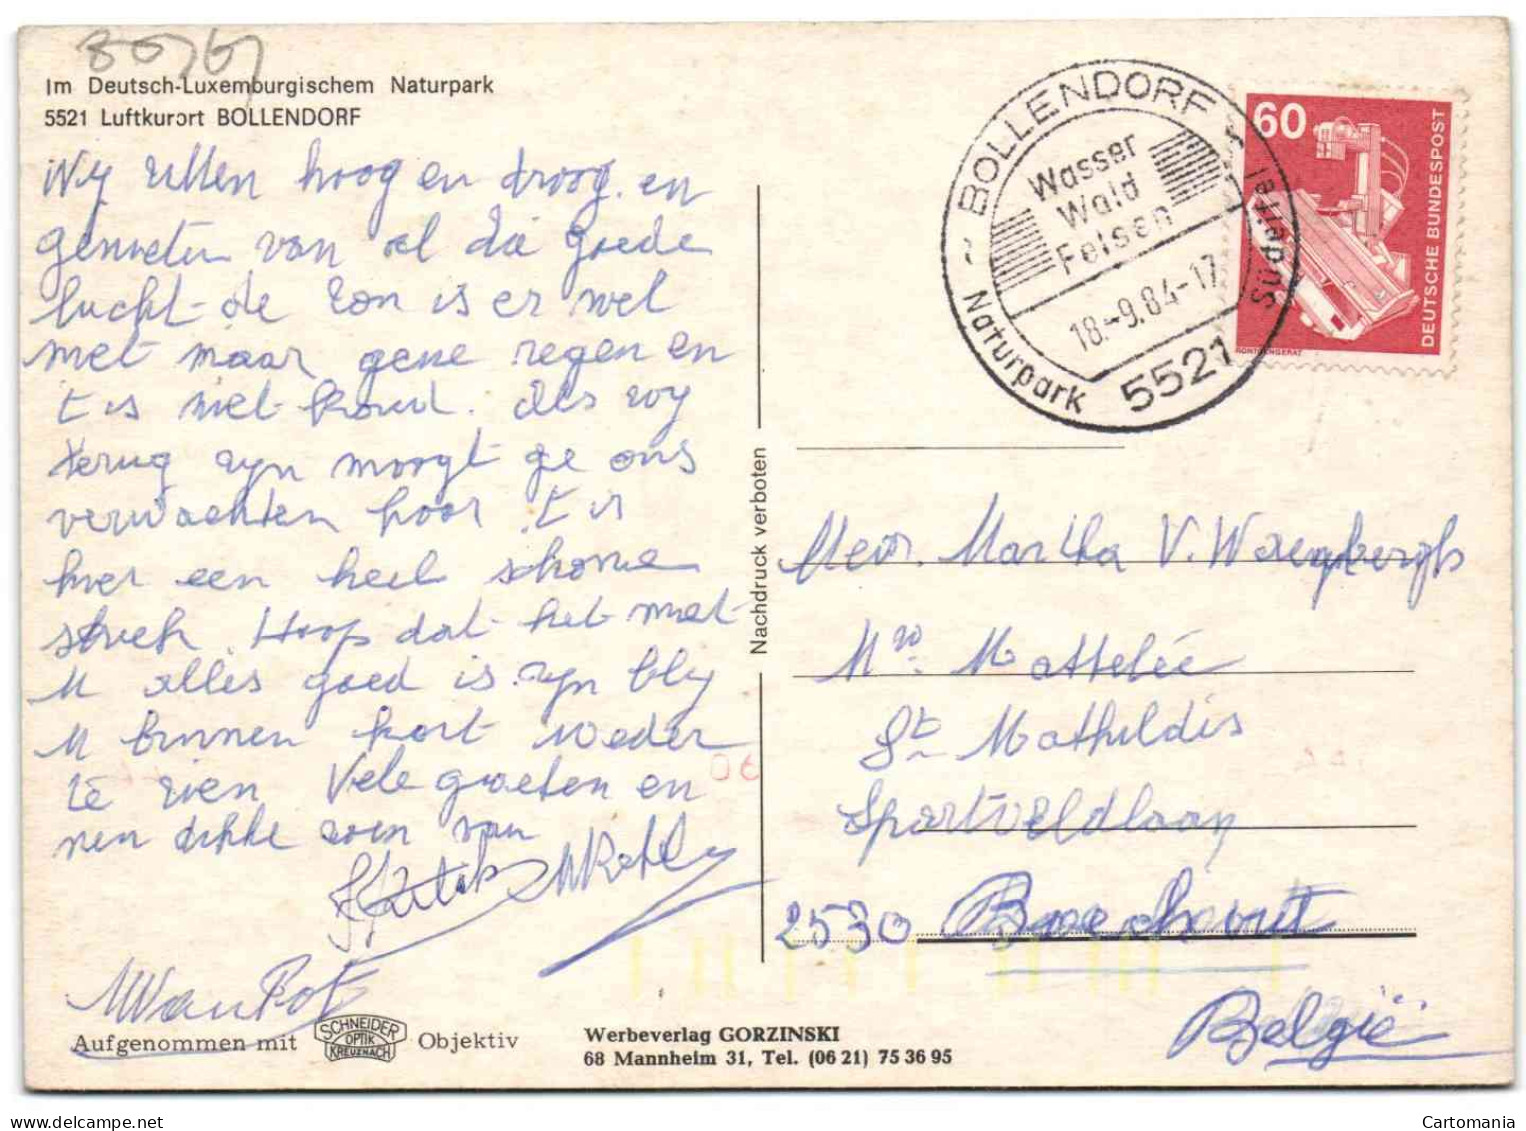 Im Deutsch-Luxemburgischem Naturpark
5521 Luftkurort BOLLENDORF
Wy zitten hoog en droog. en
genieten van al die goede
lucht - de zon is er wel
niet maar gene regen en
t is niet koud. Als wy
terug zyn moogt ge ons
verwachten hoor, t is
hier een heel schone
streek. Hoop dat het met
U alles goed is. zyn bly
U binnen kort weder
te zien Vele groeten en
nen dikke zoen van
Aufgenommen mit
SCHNEIDER
OPTIK
KREUZNACH
Objektiv
Werbeverlag GORZINSKI
68 Mannheim 31, Tel. (06 21) 75 36 95
Nachdruck verboten
BOLLENDORF
Wasser
Wald
Felsen
18.-9.84-17
5521
Naturpark
Südeifel
60
DEUTSCHE BUNDESPOST
RÖNTGENGERÄT
Mevr. Martha V.
Mattelée
St Mathildis
Sportveldlaan
2530 Boechout
België
Cartomania